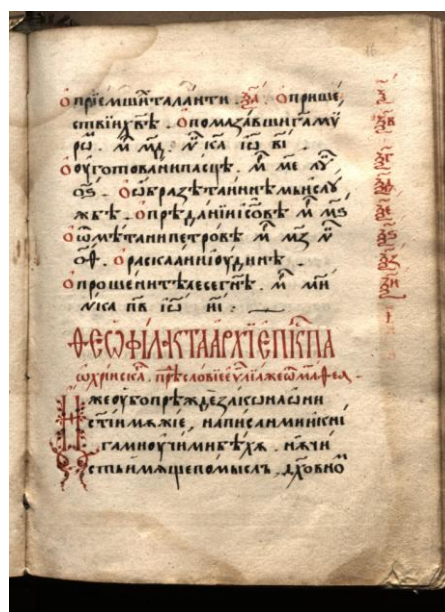 О прїемшн͛ таланти . ѯ҃а . О пришє
ствїи х҃вѣ . О помазавши г҃а мѵ
рѡ . м҃ м҃д .
О оуготовани пасцѣ . м҃ м҃е л҃у
о҃ѕ . О ѡбразѣ таинѣмь и слу
жбѣ . О прѣданїи і҃совѣ м҃ м҃ѕ
О ѡмѣтани петровѣ м҃ м҃ꙁ
О раскаани іюудинѣ .
О прошени тѣлесе г҃нѣ . м҃ м҃и
лꙋка п҃в іѡ҃ н҃і :
ѲЕѠФІЛАКТА АРХІЕПК҃ПА
ѡхринскаⷢ прѣсловїе єѵⷢлїа єже ѿ маѳеа
Иже оубо прѣжде закѡна ѡни
стїи мѫжіе , написанми книі
гами оучими бѣхѫ . нѫ чи
сть имѫще помысль . дх҃овноⷨ
16
ѯ҃а
ѯ҃в
ѯ҃г
ѯ҃д
ѯ҃е
ѯ҃ѕ
ѯ҃ꙁ
ѯ҃и